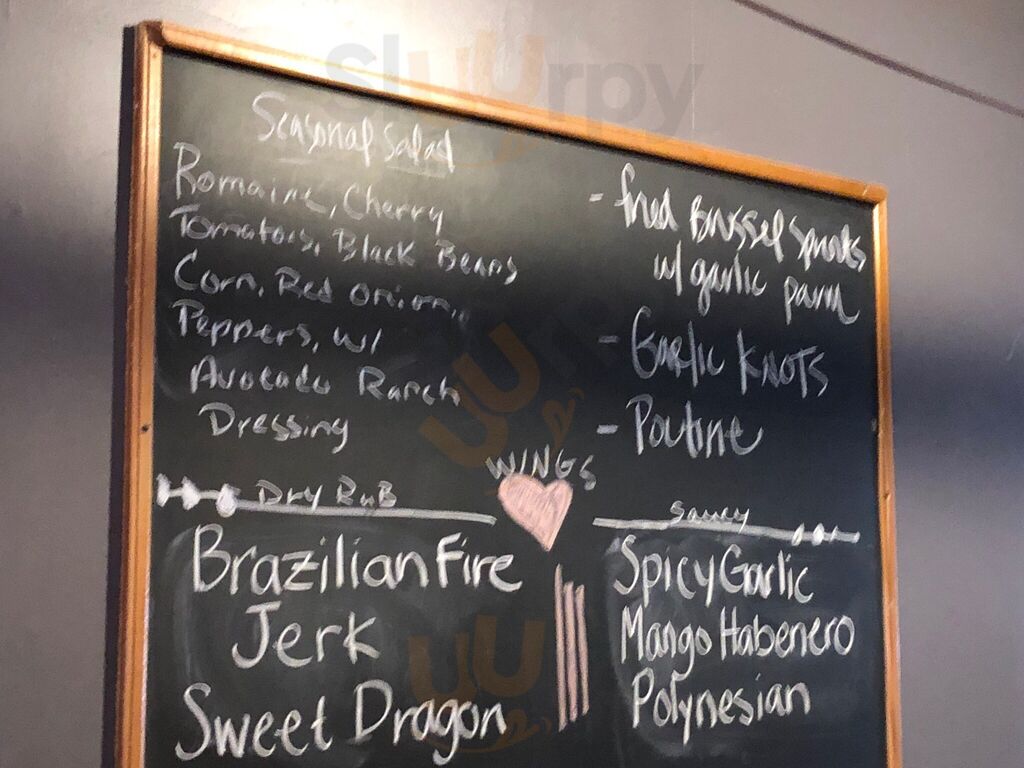 Sluurpy
Seasonal Salad
Romaine, Cherry
Tomatoes, Black Beans
Corn, Red onion,
Peppers, w/
Avocado Ranch
Dressing
- fried Brussel sprouts
w/ garlic parm
- Garlic KNOTS
- Poutine
WINGS
Dry RuB
Brazilian Fire
Jerk
Sweet Dragon
saucy
Spicy Garlic
Mango Habenero
Polynesian